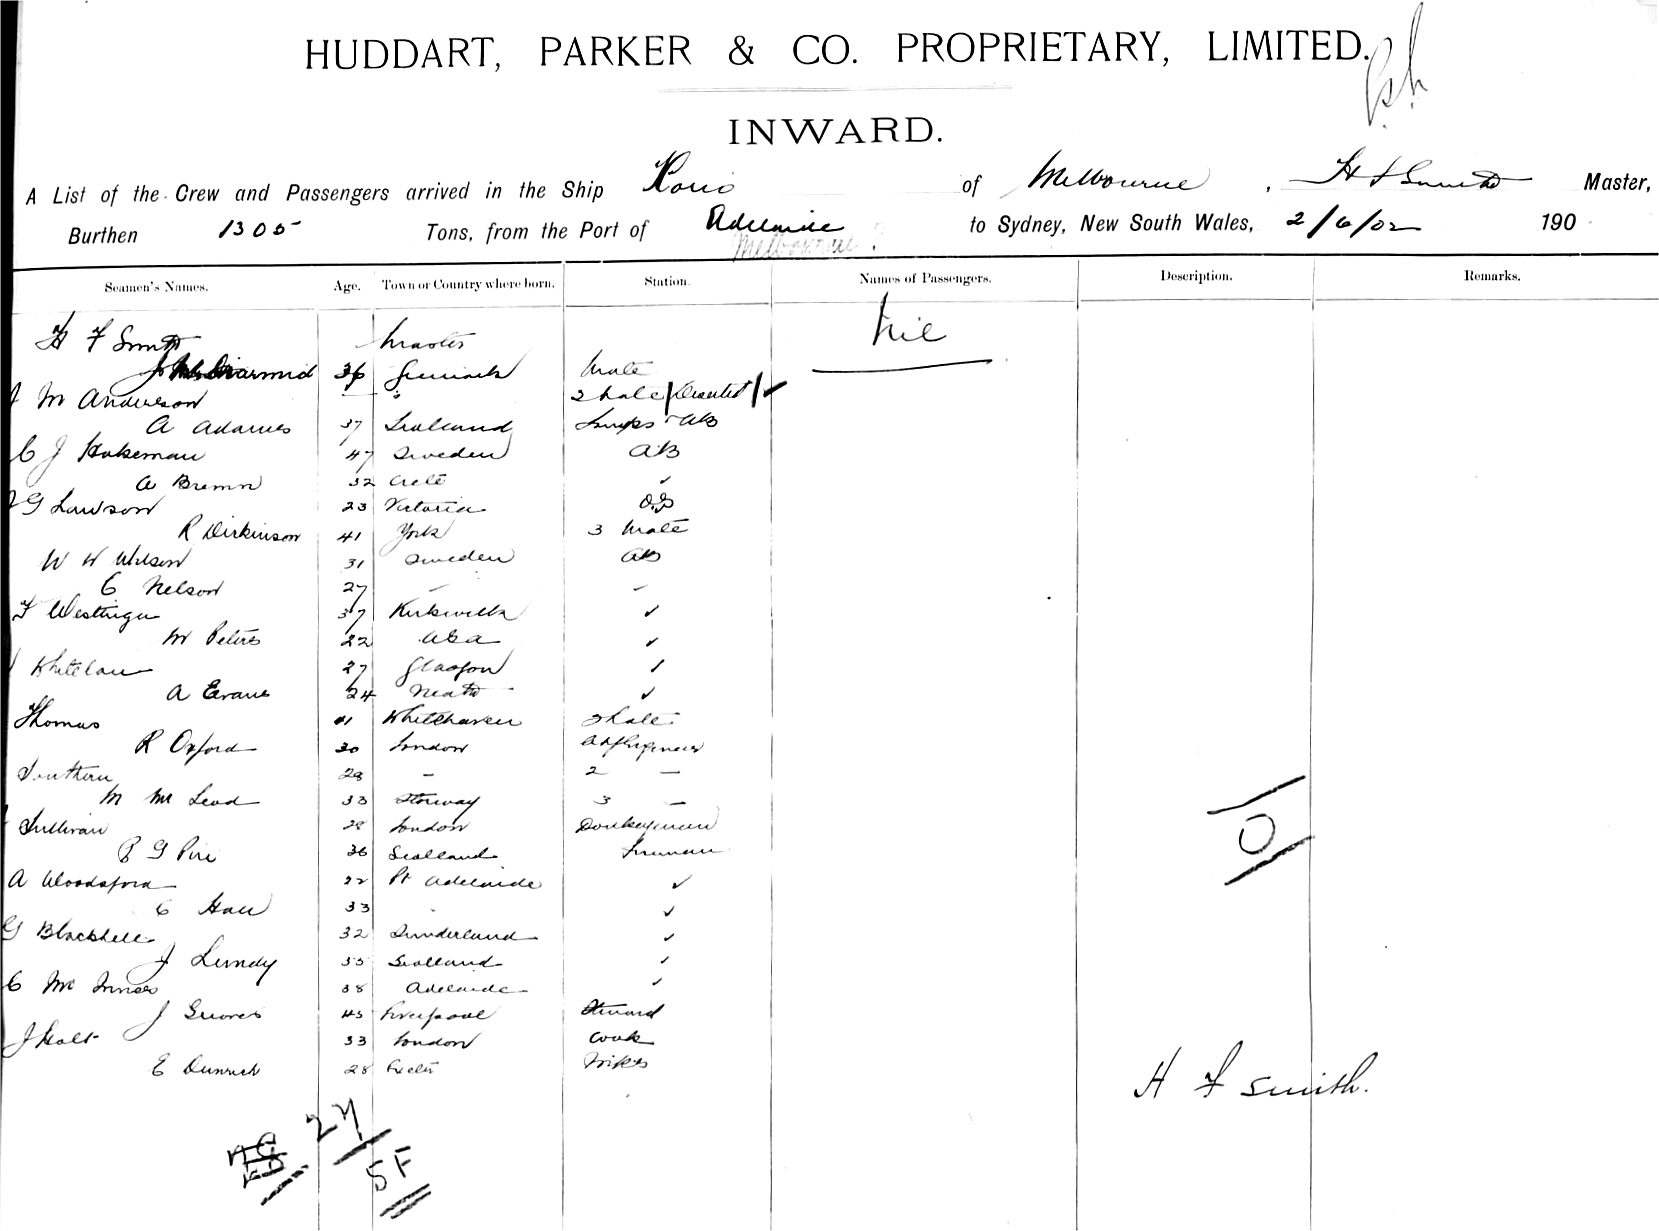 HUDDART, PARKER & CO. PROPRIETARY, LIMITED.
INWARD.
A List of the Crew and Passengers arrived in the Ship of Melbourne, H F Smith Master,
Burthen 1305 Tons, from the Port of Adelaide to Sydney, New South Wales, 2/6/02 190
Melbourne ?
Seamen's Names. Age. Town or Country where born. Station. Names of Passengers. Description. Remarks.
H F Smith Master Nil
36 Greenock Mate
M Anderson 2 Mate
A Adams 37 Scotland Lamps AB
C J Hakeman 47 Sweden AB
A Bremn 32 Crete ✓
G Lawson 23 Victoria O.S
R Dirkinson 41 York 3 Mate
W W Wilson 31 Sweden AB
C Nelson 27 – –
F 37 Kirkwall ✓
M Peters 22 USA ✓
Whitelaw 27 Glasgow ✓
A Evans 24 Neath ✓
Thomas 41 Whitehaven 2 Mate
R Oxford 30 London
28 – 2 –
M Mc Leod 33 Storway 3 –
Sullivan 28 London Donkeyman
G Pirie 36 Scotland Fireman
A Woodsford 22 Pt Adelaide ✓
C Hall 33 ✓
G Blackhell 32 Sunderland ✓
J Lundy 35 Scotland ✓
C Mc Innes 38 Adelaide ✓
J 45 Liverpool Steward
J Holt 33 London Cook
E 28 Exeter
O
H F Smith.
27
5F